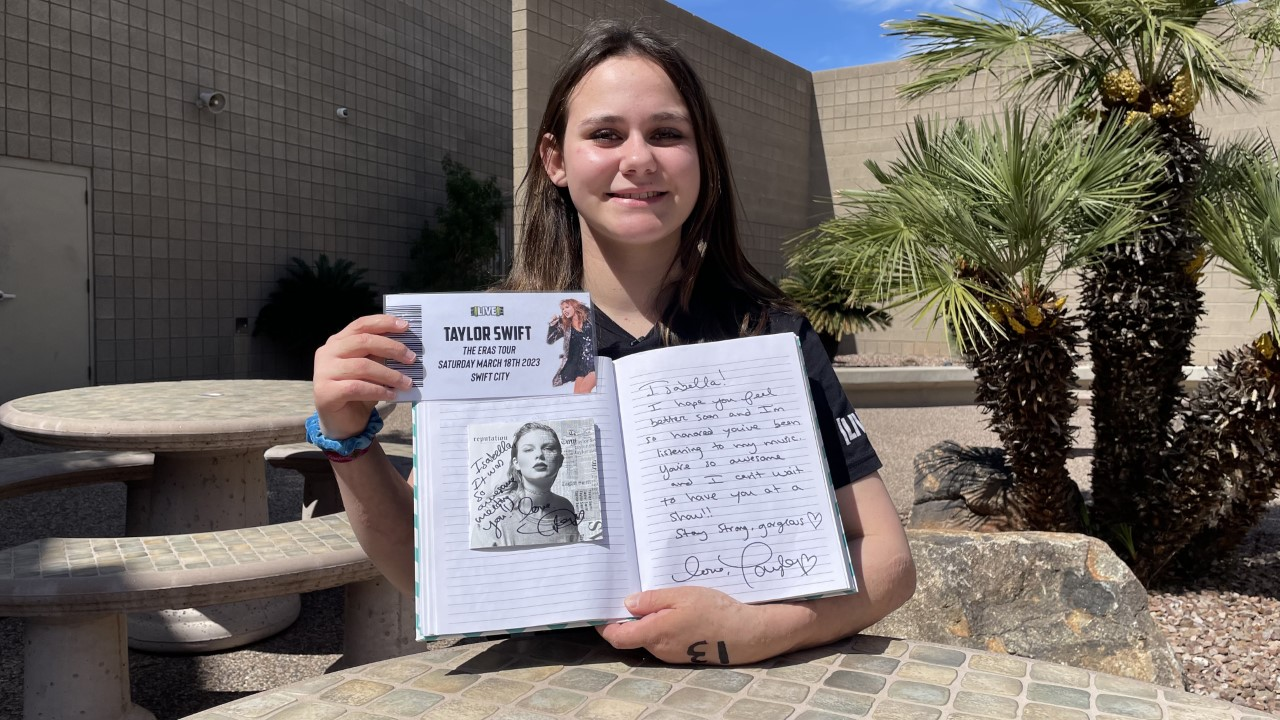 LIVE
TAYLOR SWIFT
THE ERAS TOUR
SATURDAY MARCH 18TH 2023
SWIFT CITY
reputation
Isabella
It was
so
amazing
meeting
you!
Love
Isabella!
I hope you feel
better soon and I'm
so honored you've been
listening to my music.
You're so awesome
and I can't wait
to have you at a
show!!
Stay strong, gorgeous ♡
Love, Taylor ♡
LIV
13